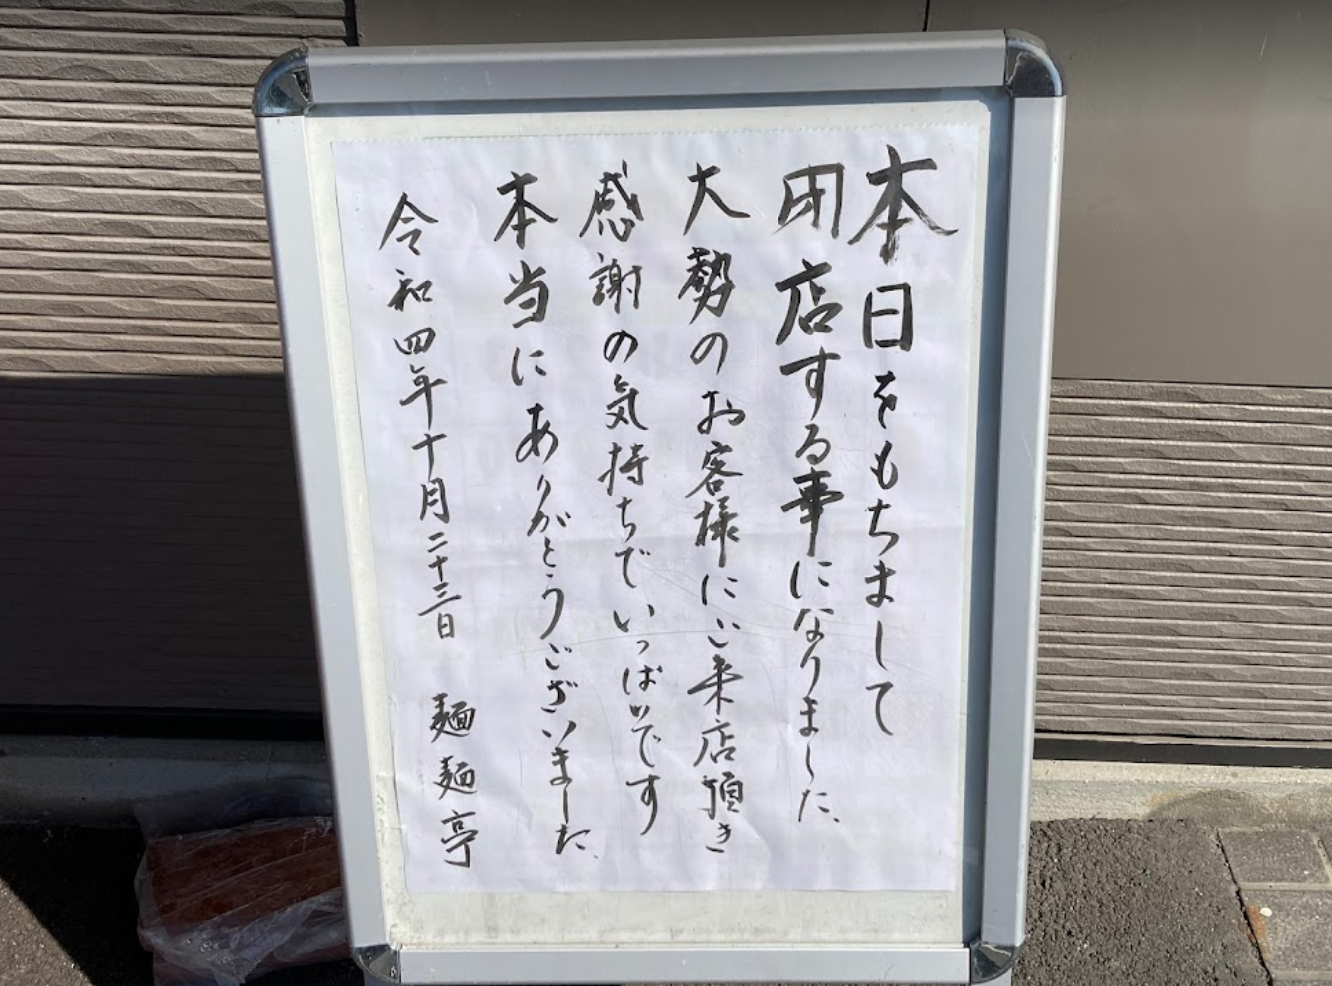 本日をもちまして
閉店する事になりました、
大勢のお客様にご来店頂き
感謝の気持ちでいっぱいです
本当にありがとうございました、
令和四年十月二十三日 麺麺亭